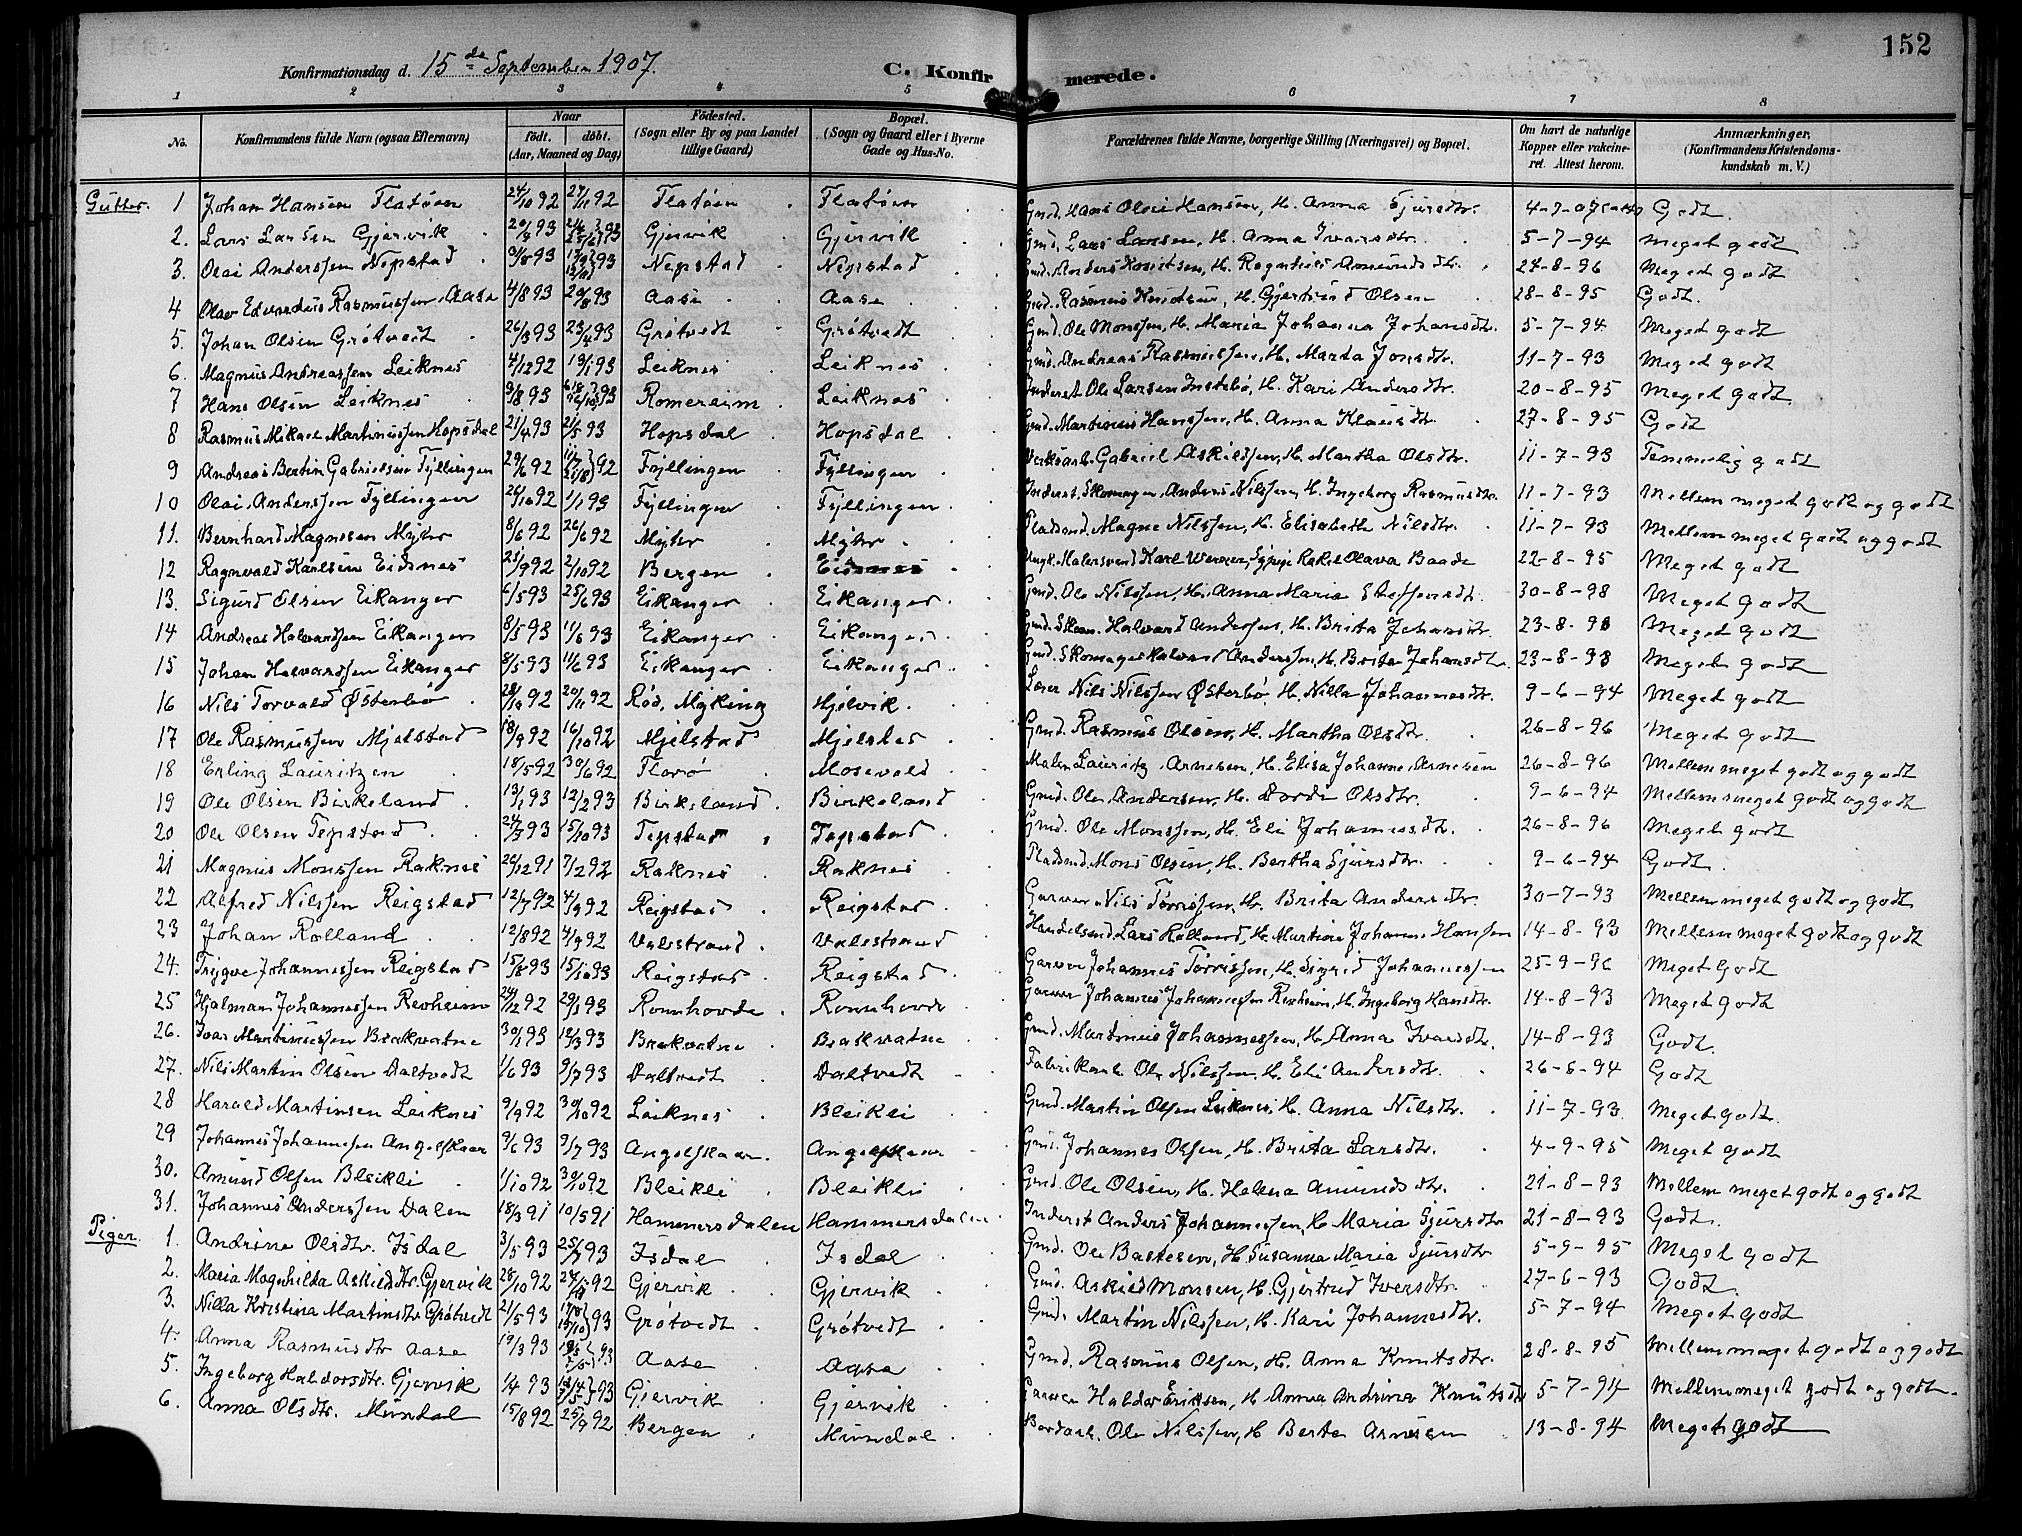 152
Konfirmationsdag d. 15de September 1907. C. Konfirmerede.
1 2 3 4 5 6 7 8
No. Konfirmandens fulde Navn (ogsaa Efternavn) Naar født. døbt. (Aar, Maaned og Dag) Fødested. (Sogn eller By og paa Landet tillige Gaard) Bopæl. (Sogn og Gaard eller i Byerne Gade og Hus-No. Forældrenes fulde Navne, borgerlige Stilling (Næringsvei) og Bopæl. Om havt de naturlige Kopper eller vakcineret. Attest herom. Anmærkninger, (Konfirmandens Kristendomskundskab m. V.)
Gutter. 1 Johan Hansen Flatøen 24/10 92 27/11 92 Flatøen Flatøen Gmd. Hans Olai Hansen, H. Anna Sjursdtr. 4-7-07 Godt.
2. Lars Larsen Gjervik Gjervik Gjervik Gmd. Lars Larsen, H. Anna Ivarsdtr. 5-7-94 Meget godt
3. Olai Anderssen Nepstad Nepstad Nepstad Gmd. Anders Knutsen, H. Ragnhild Amundsdtr. 24-8-96 Meget godt
4 Olav Edvardus Rasmussen Aase 4/8 93 20/8 93 Aase Aase Gmd. Rasmus Knutsen, H. Gjertrud Olsen 28-8-95 Godt.
5. Johan Olsen Grøtvedt 26/3 93 23/4 93 Grøtvedt Grøtvedt Gmd. Ole Monssen, H. Maria Johanna Johansdtr. 5-7-94 Meget godt
6. Magnus Andreassen Leiknes 4/12 92 19/1 93 Leiknes Leiknes Gmd. Andreas Rasmussen, H. Marta Jonsdtr. 11-7-93 Meget godt
7 Hans Olsen Leiknes 9/8 93 Romereim Leiknes Inderst Ole Larsen Instebø, H. Kari Andersdtr. 20-8-95 Meget godt.
8 Rasmus Mikael Martinussen Hopsdal 21/4 93 21/5 93 Hopsdal Hopsdal Gmd. Martinus Hanssen, H. Anna Klausdtr. 27-8-95 Godt
9 Andreas Bertin Gabrielsen Fyllingen 29/6 92 Fyllingen Fyllingen Verksarb. Gabriel Askildsen, H. Martha Olsdtr. 11-7-93 Temmelig godt
10 Olai Anderssen Fyllingen 26/10 92 1/1 93 Fyllingen Fyllingen Inderst, Skomager Anders Nilssen, H. Ingeborg Rasmusdtr. 11-7-93 Mellem meget godt og godt
11. Bernhard Magnesen Myhr 8/6 92 26/6 92 Myhr Myhr Pladsmd. Magne Nilssen, H. Elisabeth Nilsdtr. 11-7-93 Mellem meget godt og godt
12 Ragnvald Karlsen Eidsnes 25/9 92 2/10 92 Bergen Eidsnes Ungk. Malersvend Karl Werner, Rakel Olava Baade 22-8-95 Meget godt
13. Sigurd Olsen Eikanger 6/5 93 25/6 93 Eikanger Eikanger Gmd. Ole Nilssen, H. Anna Maria Steffensdtr. 30-8-98 Meget godt
14 Andreas Halvardsen Eikanger 8/5 93 11/6 93 Eikanger Eikanger Gmd. Skom. Halvard Andersen, H. Brita Johansdtr. 23-8-98 Meget godt
15 Johan Halvardsen Eikanger 8/5 93 11/6 93 Eikanger Eikanger Gmd. Skomager Halvard Anderssen, H. Brita Johansdtr. 23-8-98 Meget godt
16 Nils Torvald Østerbø 28/10 92 20/11 92 Rød, Myking Hjelvik Lærer Nils Nilssen Østerbø, H. Nilla Johannesdtr. 9-6-94 Meget godt
17 Ole Rasmussen Mjelstad 18/9 92 16/10 92 Mjelstad Mjelstad Gmd. Rasmus Olsen, H. Martha Olsdtr. 26-8-96 Meget godt
18 Erling Lauritzen 18/5 92 30/6 92 Florø Mosevold Maler Lauritz Arnesen, H. Elisa Johanne Arnesen 26-8-96 Mellem meget godt og godt
19 Ole Olsen Birkeland 13/1 93 12/2 93 Birkeland Birkeland Gmd. Ole Andersen, H. Dorde Olsdtr. 9-6-94 Mellem meget godt og godt
20 Ole Olsen Tepstad 24/9 93 15/10 93 Tepstad Tepstad Gmd. Ole Monssen, H. Eli Johannesdtr. 26-8-96 Meget godt
21 Magnus Monssen Raknes 26/12 91 7/2 92 Raknes Raknes Pladsmd. Mons Olsen, H. Bertha Sjursdtr. 9-6-94 Godt.
22 Alfred Nilssen Reigstad 12/7 92 4/9 92 Reigstad Reigstad Garver Nils Torrissen, H. Brita Andersdtr. 30-7-93 Mellem meget godt og godt
23 Johan Rolland 12/8 92 4/9 92 Valestrand Valestrand Handelsmd Lars Rolland, H. Martine Johanne Hansen 14-8-93 Mellem meget godt og godt
24. Trygve Johannessen Reigstad 15/8 93 15/10 93 Reigstad Reigstad Garver Johannes Torrissen, H. Sigrid Johannessen 25-9-96 Meget godt
25 Hjalmar Johannessen Revheim 24/12 92 29/1 93 Romhovde Romhovde Garver Johannes Johannessen Revheim, H. Ingeborg Hansdtr. 14-8-93 Meget godt
26. Ivar Martinussen Brakvatne 30/1 93 12/3 93 Brakvatne Brakvatne Gmd. Martinus Johannessen, H. Anna Ivarsdtr. 14-8-93 Godt.
27. Nils Martin Olsen Daltvedt 1/6 93 9/7 93 Daltvedt Daltvedt Fabrikarb. Ole Nilssen, H. Eli Andersdtr. 26-6-94 Godt
28 Harald Martinsen Leiknes 9/9 92 30/10 92 Leiknes Bleikli Gmd. Martin Olsen Leiknes, H. Anna Nilsdtr. 11-7-93 Meget godt.
29 Johannes Johannesen Angelskaar 9/6 93 9/7 93 Angelskaar Angelskaar Gmd. Johannes Olsen, H. Brita Larsdtr. 4-9-95 Meget godt
30. Amund Olsen Bleikli 1/10 92 30/10 92 Bleikli Bleikli Gmd. Ole Olsen, H. Helena Amundsdtr. 21-8-93 Mellem meget godt og godt
31. Johannes Anderssen Dalen 18/3 91 10/5 91 Hammersdalen Hammersdalen Inderst Anders Johannessen, H. Maria Sjursdtr 21-8-93 Godt.
Piger. 1. Andrine Olsdtr. Isdal 3/5 93 Isdal Isdal Gmd. Ole Bastesen, H. Susanna Maria Sjursdtr 5-9-95 Meget godt
2. Maria Magnhilda Askildsdtr. Gjervik 28/10 92 Gjervik Gjervik Gmd. Askild Monsen, H. Gjertrud Iversdtr. 27-6-93 Godt.
3. Nilla Kristina Martinsdtr. Grøtvedt 21/5 93 Grøtvedt Grøtvedt Gmd. Martin Nilssen, H. Kari Johannesdtr. 5-7-94 Meget godt
4. Anna Rasmusdtr Aase 19/3 93 Aase Aase Gmd. Rasmus Olsen, H. Anna Knutsdtr. 28-8-95 Mellem meget godt og godt
5. Ingeborg Haldorsdtr. Gjervik 1/4 93 Gjervik Gjervik Garver Haldor Eriksen, H. Anna Andrina Knutsdtr 5-7-94 Mellem meget godt og godt.
6. Anna Olsdtr. Mundal 15/8 92 25/9 92 Bergen Mundal Bordarb. Ole Nilssen, H Berte Arnesen 13-8-94 Meget godt